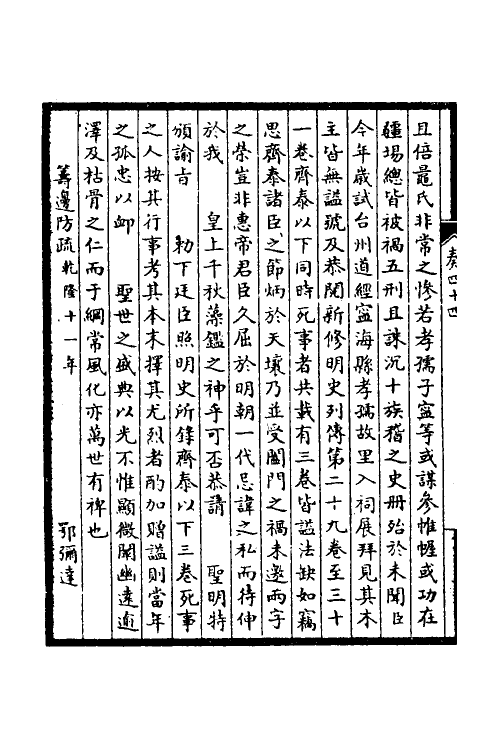 且倍鼂氏非常之慘若孝孺子寧等或謀參帷幄或功在
疆場總皆被禍五刑且誅沉十族稽之史册殆於未聞臣
今年歲試台州道經寧海縣孝孺故里入祠展拜見其本
主皆無謚號及恭閱新修明史列傳第二十九卷至三十
一卷齊泰以下同時死事者共載有三卷皆謚法缺如竊
思齊泰諸臣之節炳於天壤乃並受闔門之禍未邀兩字
之榮豈非惠帝君臣久屈於明朝一代忌諱之私而待伸
於我　皇上千秋藻鑑之神乎可否恭請　聖明特
頒諭旨　勅下廷臣照明史所錄齊泰以下三卷死事
之人按其行事考其本末擇其尤烈者酌加贈謚則當年
之孤忠以卹　聖世之盛典以光不惟顯微闡幽遠逾
澤及枯骨之仁而于綱常風化亦萬世有裨也
籌邊防疏乾隆十一年　鄂彌達
奏四十四